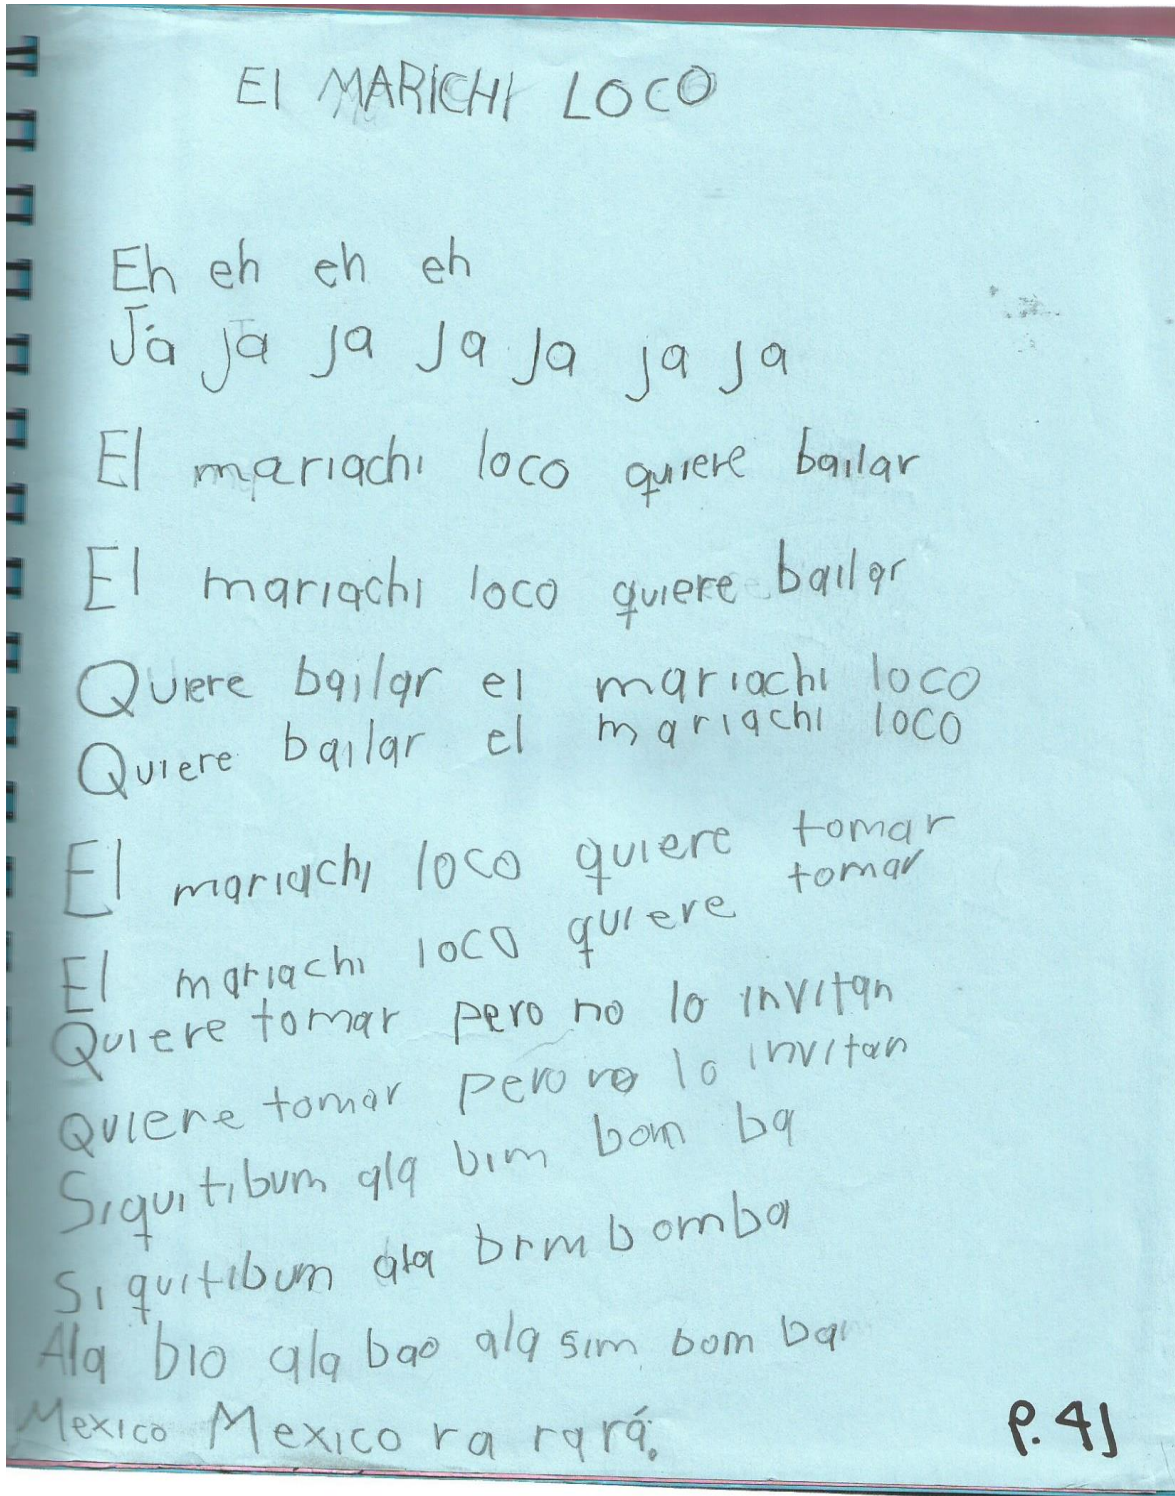 El MARICHI LOCO
Eh eh eh eh
Ja ja ja Ja Ja ja ja
El mariachi loco quiere bailar
El mariachi loco quiere bailar
Quiere bailar el mariachi loco
Quiere bailar el mariachi loco
El mariachi loco quiere tomar
El mariachi loco quiere tomar
Quiere tomar pero no lo invitan
Quiere tomar pero no lo invitan
Siquitibum ala bim bom ba
Siquitibum ala bim bomba
Ala bio ala bao ala sim bom ba
Mexico Mexico ra ra rá.
p. 41